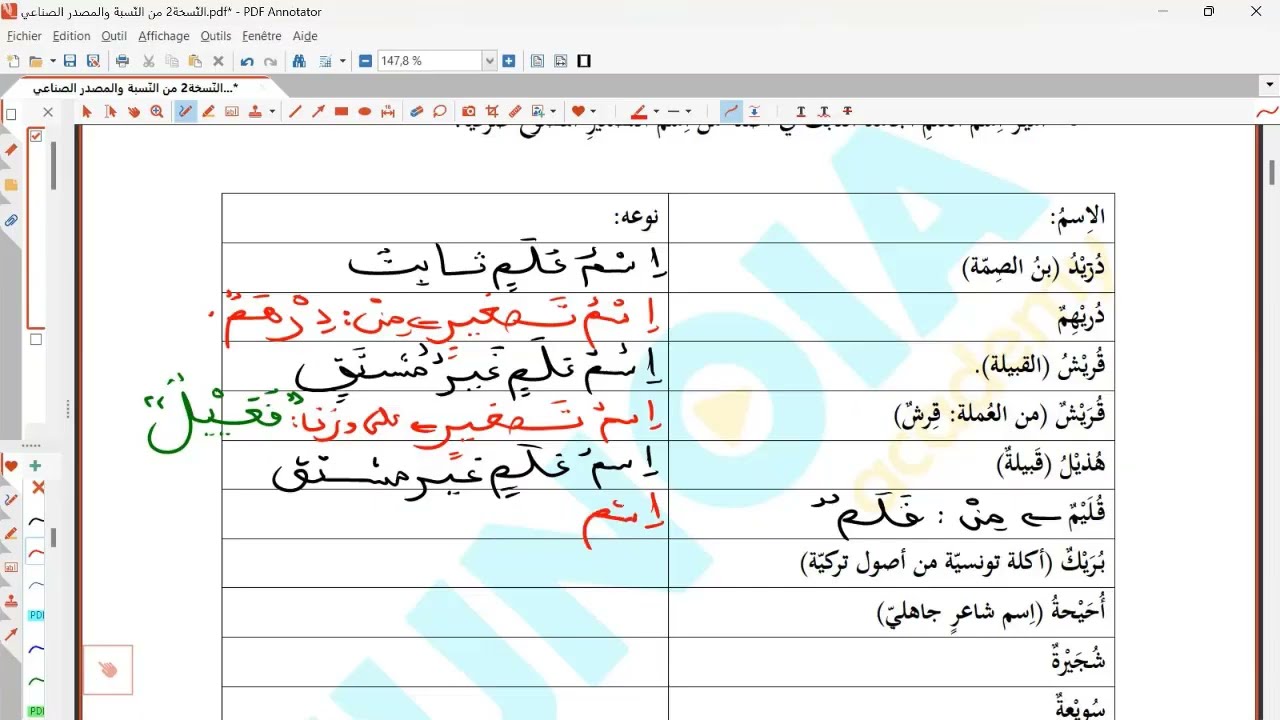 النّسخة2 من النّسبة والمصدر الصناعي.pdf* - PDF Annotator
Fichier Edition Outil Affichage Outils Fenêtre Aide
147,8 %
النّسخة2 من النّسبة والمصدر الصناعي...*
الاِسمُ: نوعه:
دُرَيْدُ (بنُ الصِمّة) اِسْمُ عَلَمٍ ثَابِتٌ
دُرَيْهِمٌ اِسْمُ تَصغِيرٍ مِنْ: دِرْهَمٌ.
قُريْشُ (القبيلة). اِسْمُ عَلَمٍ غَيرُ مُشتَقٍّ
قُرَيْشٌ (من العُملة: قِرشٌ) اِسمُ تَصغيرٍ على وزننا: "فُعَيْيلٌ"
هُذيْلُ (قَبيلةٌ) اِسمُ عَلَمٍ غيرُ مشتقّ
قُلَيْمٌ مِنْ: قَلَمٌ اِسم
بُرَيْكٌ (أكلة تونسيّة من أصول تركيّة)
أُحَيْحةُ (اِسم شاعرٍ جاهليّ)
شُجَيْرةٌ
سُويْعةٌ
UNOIA
academy
PDF
PDF